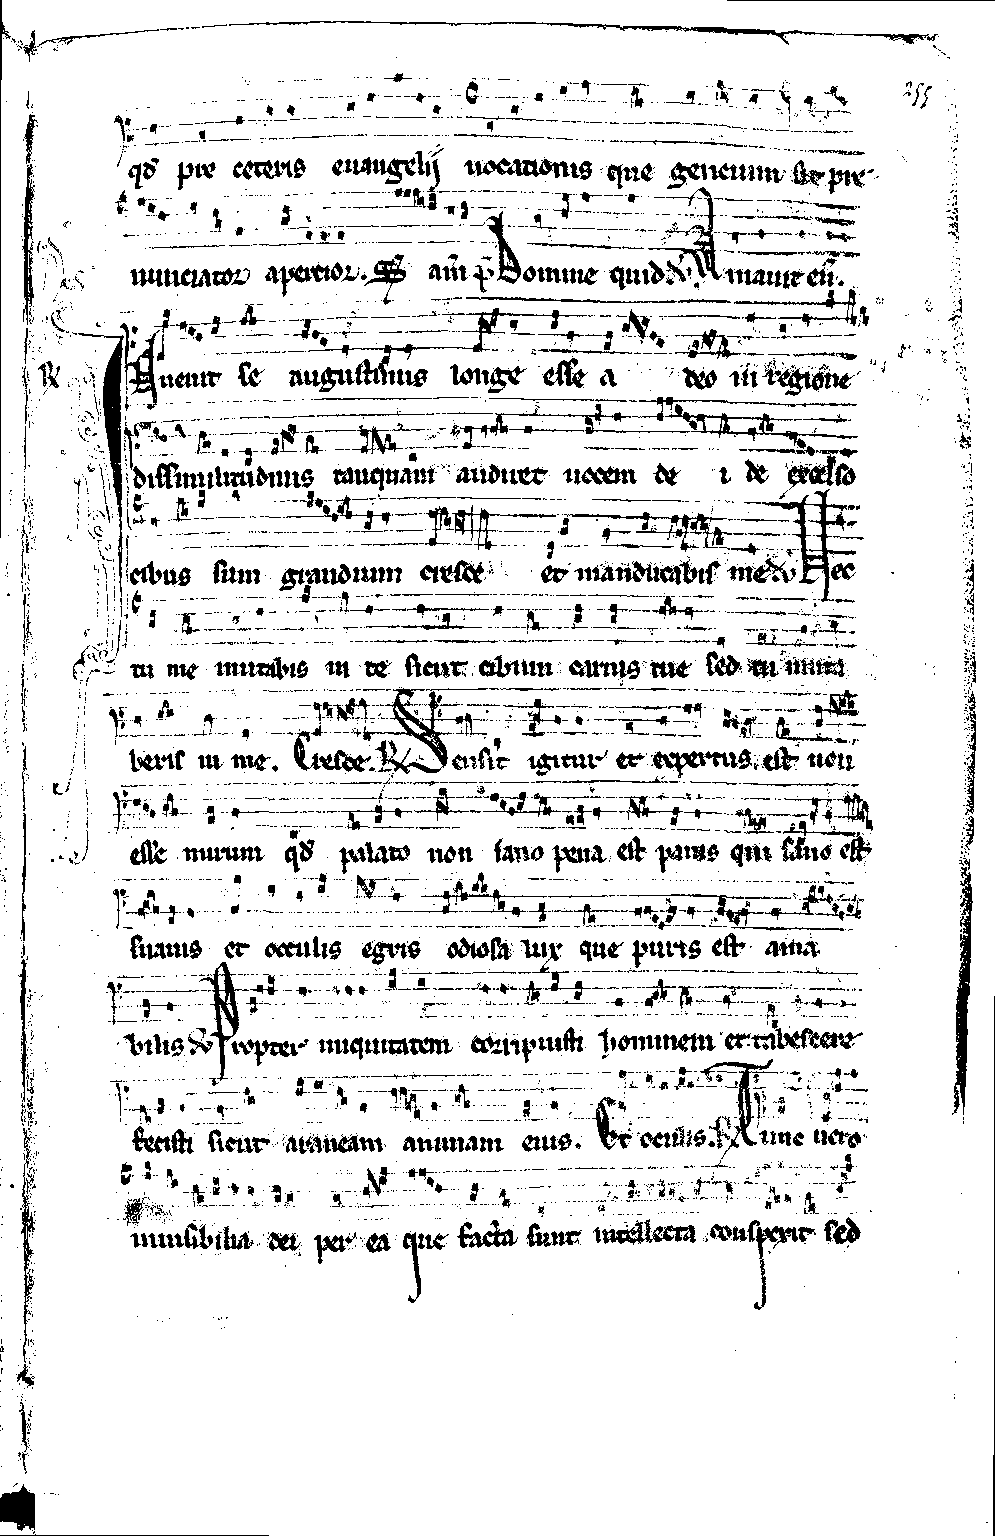 255
qd pre ceteris euangelij uocationis que gencium sit pre
nunciator apercior. am p Domine quid Amauit eu.
Inuenit se augustinus longe esse a deo in regione
dissimilitudinis tanquam audiret uocem de i de excelso
cibus sum grandium cresce et manducabis me Nec
tu me mutabis in te sicut cibum carnis tue sed tu muta
beris in me. Cresce. Sensit igitur et expertus est non
esse mirum qd palato non sano pena est panis qui sano est
suauis et occulis egris odiosa lux que puris est ama
bilis Propter iniquitatem corripuisti hominem et tabescere
fecisti sicut araneam animam eius. Et oculis. Tunc uero
inuisibilia dei per ea que facta sunt intellecta conspexit sed